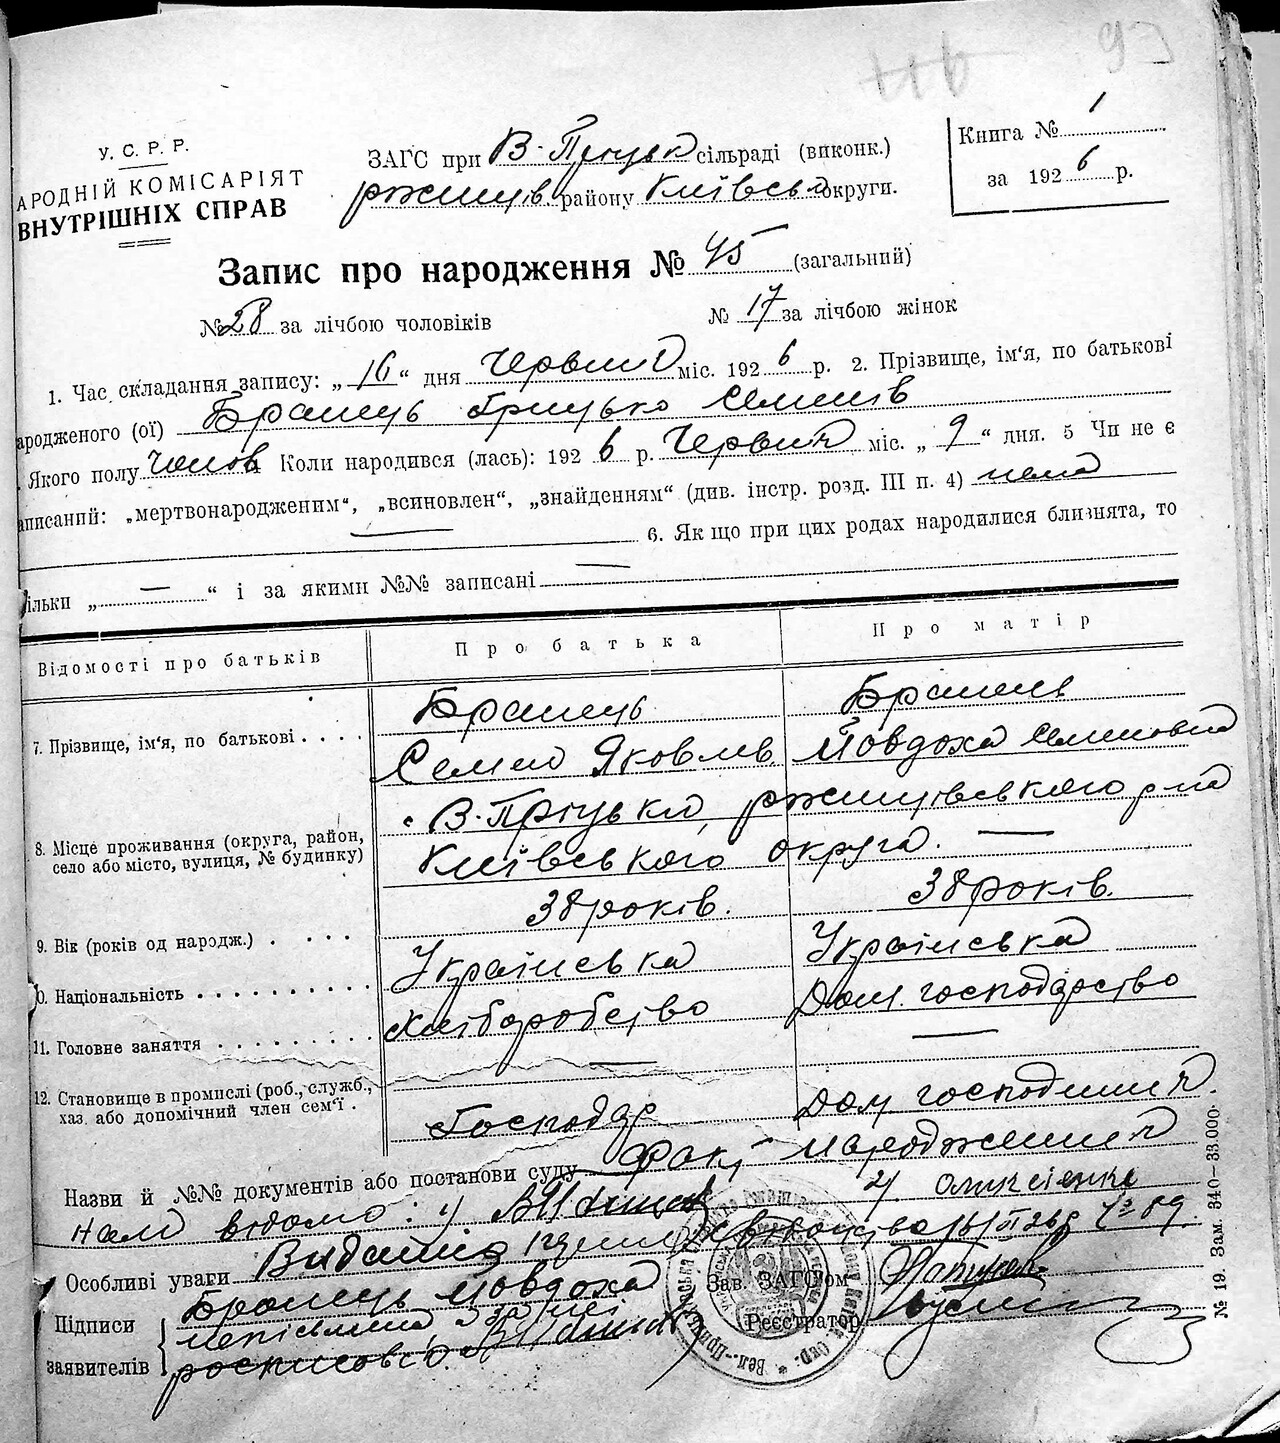 93
У. С. Р. Р.
АРОДНІЙ КОМІСАРІЯТ
ВНУТРІШНІХ СПРАВ
ЗАГС при В-Пріцьк сільраді (виконк.)
ржищів району Київськ округи.
Книга № 1
за 1926 р.
Запис про народження № 45 (загальний)
№ 28 за лічбою чоловіків № 17 за лічбою жінок
1. Час складання запису: „16“ дня Червня міс. 1926 р. 2. Прізвище, ім'я, по батькові
ародженого (ої) Бранець Грицько Семенів
Якого полу чолов Коли народився (лась): 1926 р. Червня міс. „9“ дня. 5 Чи не є
аписаний: „мертвонародженим“, „всиновлен“, „знайденням“ (див. інстр. розд. III п. 4) нема
— 6. Як що при цих родах народилися близнята, то
ільки „—“ і за якими №№ записані —
Відомості про батьків Про батька Про матір
7. Прізвище, ім'я, по батькові . . . . Бранець Бранець
Семен Яковлев Йовдоха Семеновна
8. Місце проживання (округа, район, село або місто, вулиця, № будинку) с. В-Пріцьки, ржищівського р-на
Київського округа. —
9. Вік (років од народж.) . . . . 38 років. 38 років.
0. Національність . . . . . . . . . . Українська Українська
11. Головне заняття . . . . . . . . . Хліборобство Дом. господарство
— —
12. Становище в промислі (роб., служб., хаз. або допомічний член сем'ї . Господар Дом господиня.
Назви й №№ документів або постанови суду Факт народження
нам відомо: 1/ 2/
Особливі уваги Видано
Підписи заявителів Бранець Йовдоха
неписьменна, за неї
росписався.
Зав. ЗАГС'ом
Реєстратор
№ 19. Зам. 340—33.000.